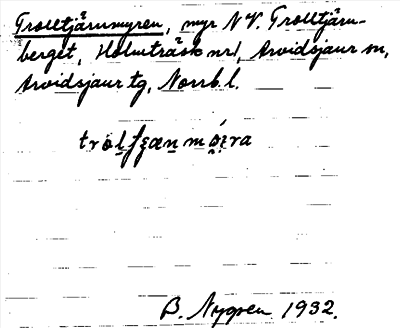 Trolltjärnmyren, myr NV. Trolltjärn-
berget, Holmträsk nr 1, Arvidsjaur sn,
Arvidsjaur tg, Norrb. l.
B. Nygren 1932.